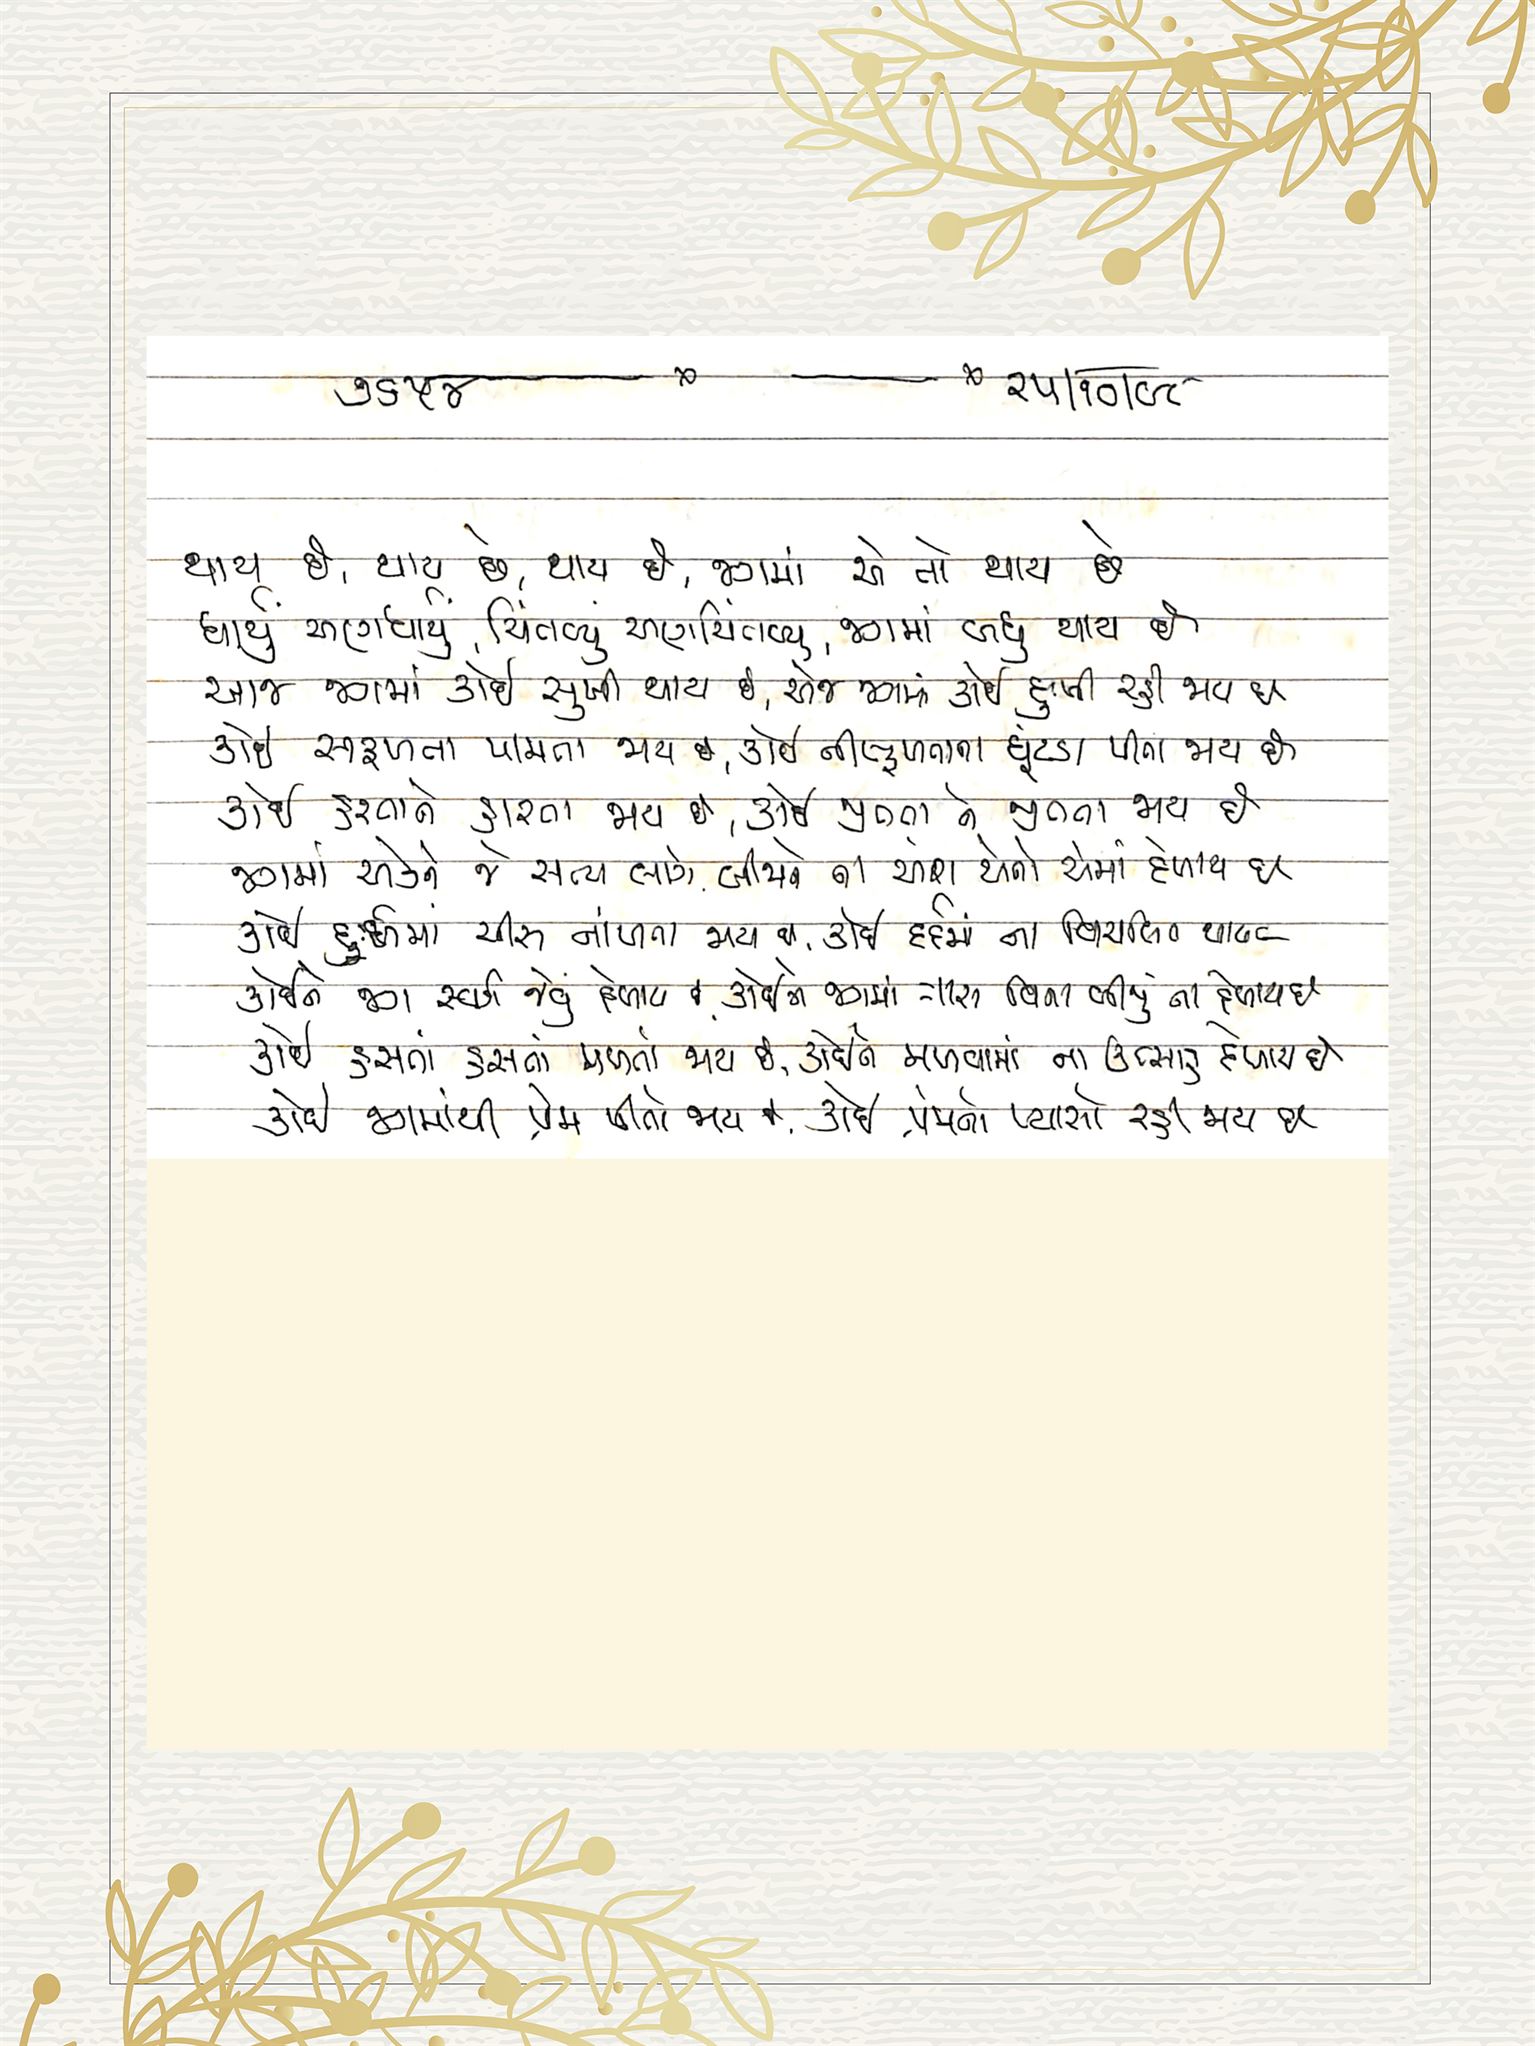 ૭૬૫૪ ૨૫/૧૦/૯૮
થાય છે, થાય છે, થાય છે, જગમાં એ તો થાય છે
ધાર્યું અણધાર્યું, ચિંતવ્યું અણચિંતવ્યુ, જગમાં બધુ થાય છે
આજ જગમાં કોઈ સુખી થાય છે, એજ જગમાં કોઈ દુઃખી રહી જાય છે
કોઈ સફળતા પામતા જાય છે, કોઈ નીષ્ફળતાના ઘૂંટડા પીતા જાય છે
કોઈ હારતાને હારતા જાય છે, કોઈ જીતતા ને જીતતા જાય છે
જગમાં એકને જે સત્ય લાગે, બીજાને ના અંશ એનો એમાં દેખાય છે
કોઈ દુઃખમાં ચીસ નાંખતા જાય છે, કોઈ દર્દમાં ના વિચલિત થાય છે
કોઈને જગ સ્વર્ગ જેવું દેખાય છે, કોઈને જગમાં ત્રાસ વિના બીજું ના દેખાય છે
કોઈ હસતાં હસતાં મળતો જાય છે, કોઈને મળવામાં ના ઉત્સાહ દેખાય છે
કોઈ જગમાંથી પ્રેમ પીતો જાય છે, કોઈ પ્રેમનો પ્યાસો રહી જાય છે